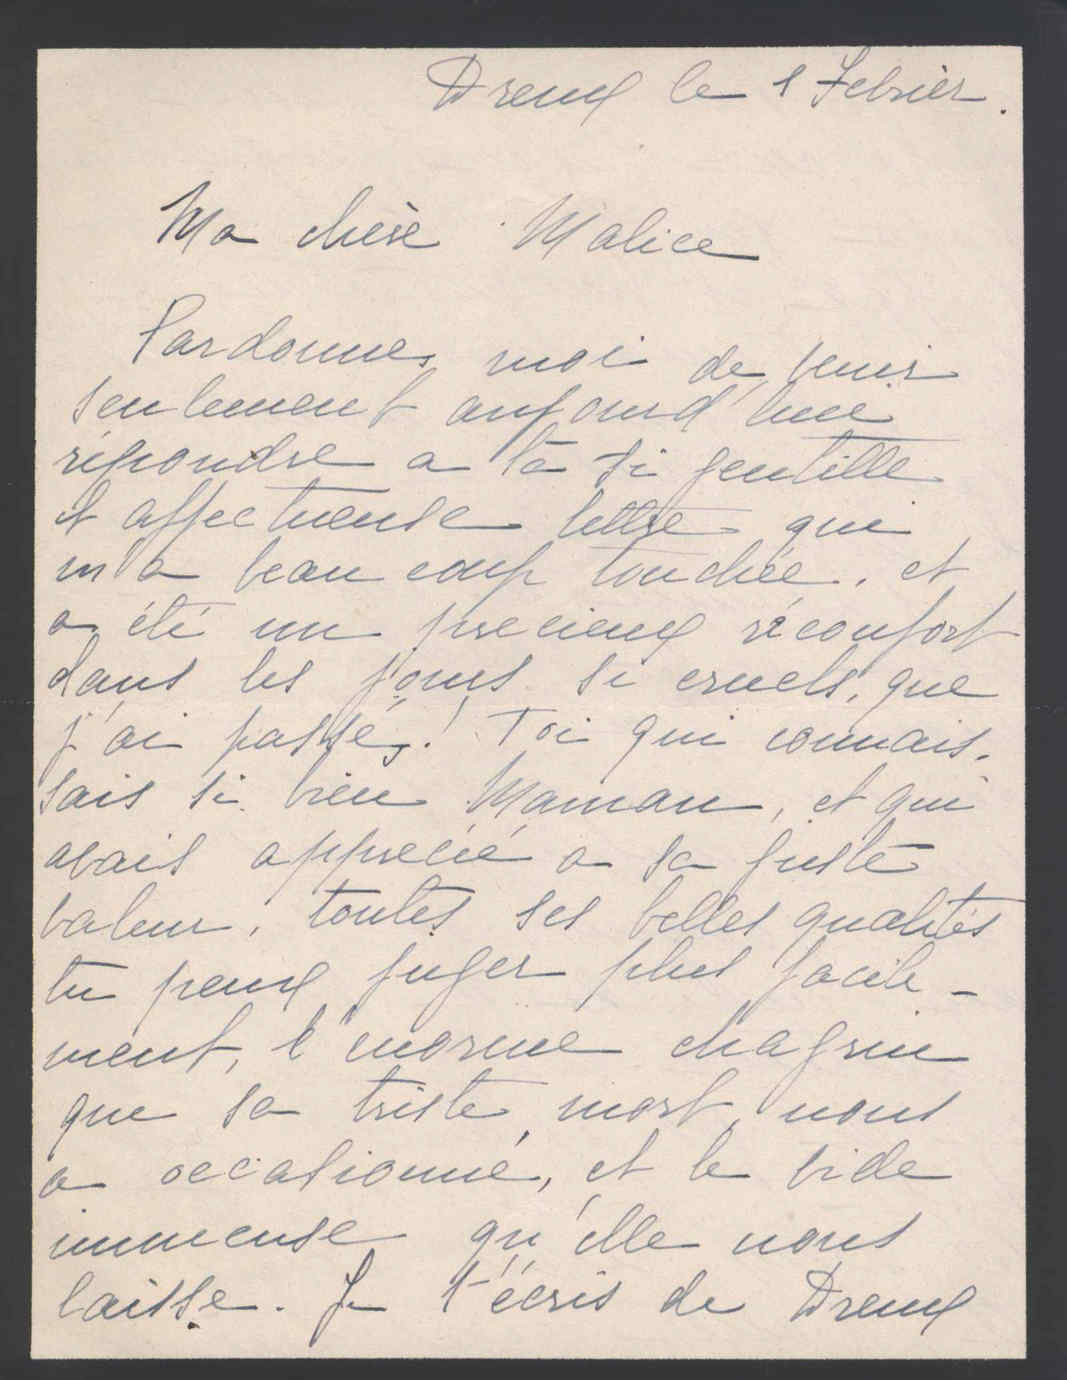 Dreux le 1 Febrier.
Ma chère Malice
Pardonnes moi de venir
seulement aujourd'hui
répondre a ta si gentille
et affectueuse lettre qui
m'a beaucoup touchée, et
a été un precieux réconfort
dans les jours si cruels, que
j'ai passés! Toi qui connais-
sais si bien Maman, et qui
avais apprecié a sa juste
valeur, toutes ses belles qualités
tu peux juger plus facile-
ment, l'enorme chagrin
que sa triste mort nous
a occasionné, et le vide
immense qu'elle nous
laisse. Je t'écris de Dreux